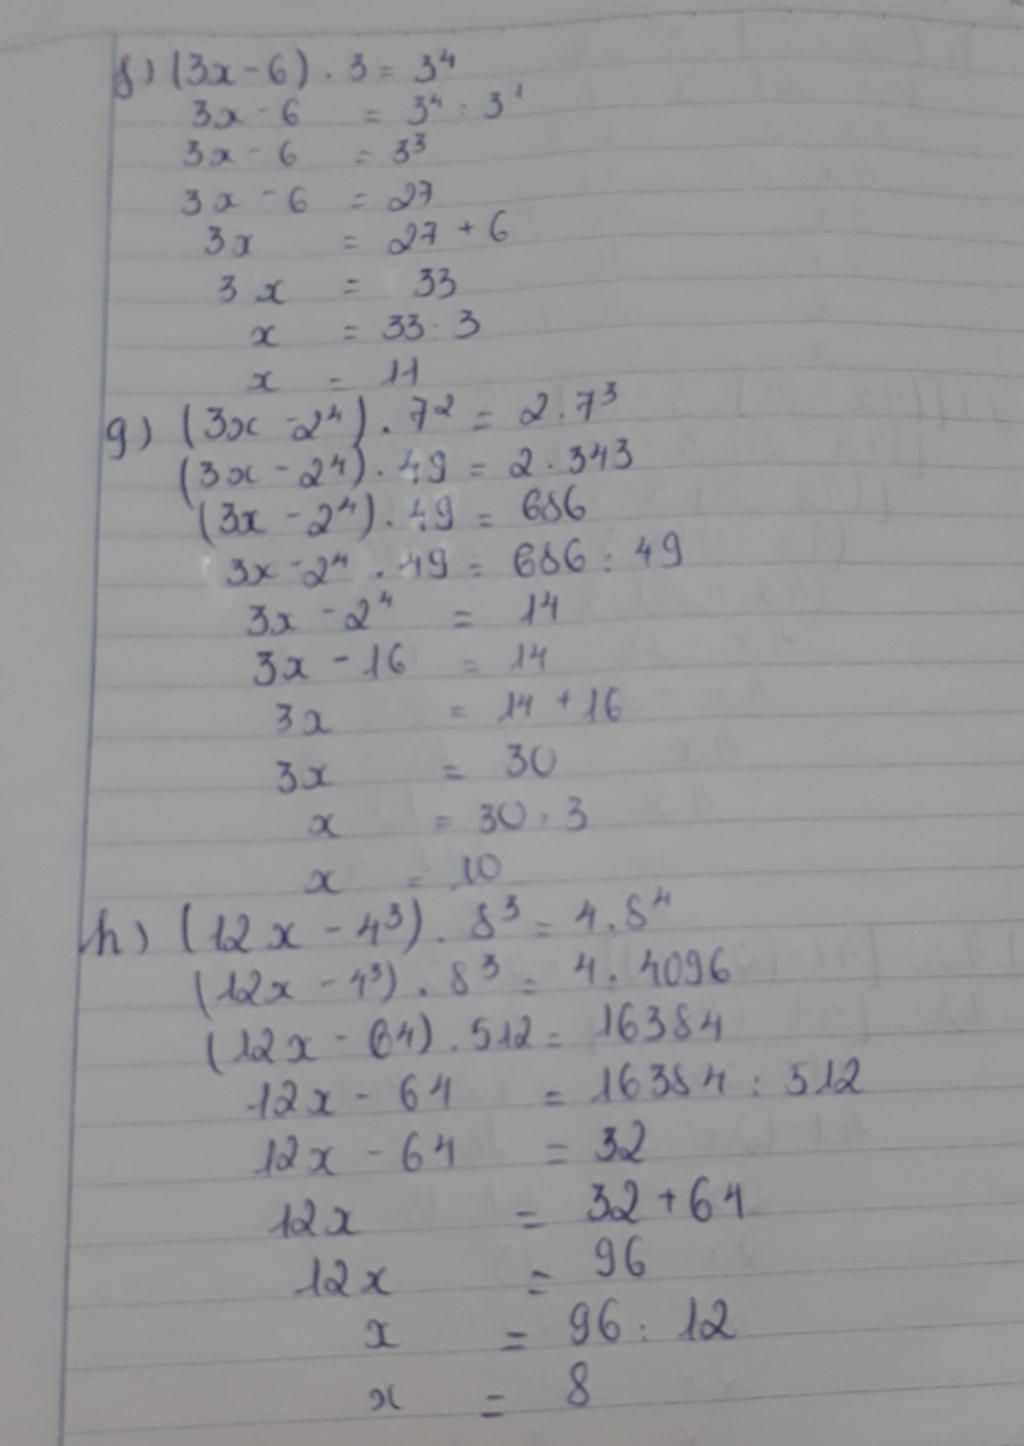 f) (3x - 6) . 3 = 3⁴
3x - 6 = 3⁴ : 3¹
3x - 6 = 3³
3x - 6 = 27
3x = 27 + 6
3x = 33
x = 33 : 3
x = 11
g) (3x - 2⁴) . 7² = 2 . 7³
(3x - 2⁴) . 49 = 2 . 343
(3x - 2⁴) . 49 = 686
3x - 2⁴ . 49 = 686 : 49
3x - 2⁴ = 14
3x - 16 = 14
3x = 14 + 16
3x = 30
x = 30 : 3
x = 10
h) (12x - 4³) . 8³ = 4 . 8⁴
(12x - 4³) . 8³ = 4 . 4096
(12x - 64) . 512 = 16384
12x - 64 = 16384 : 512
12x - 64 = 32
12x = 32 + 64
12x = 96
x = 96 : 12
x = 8